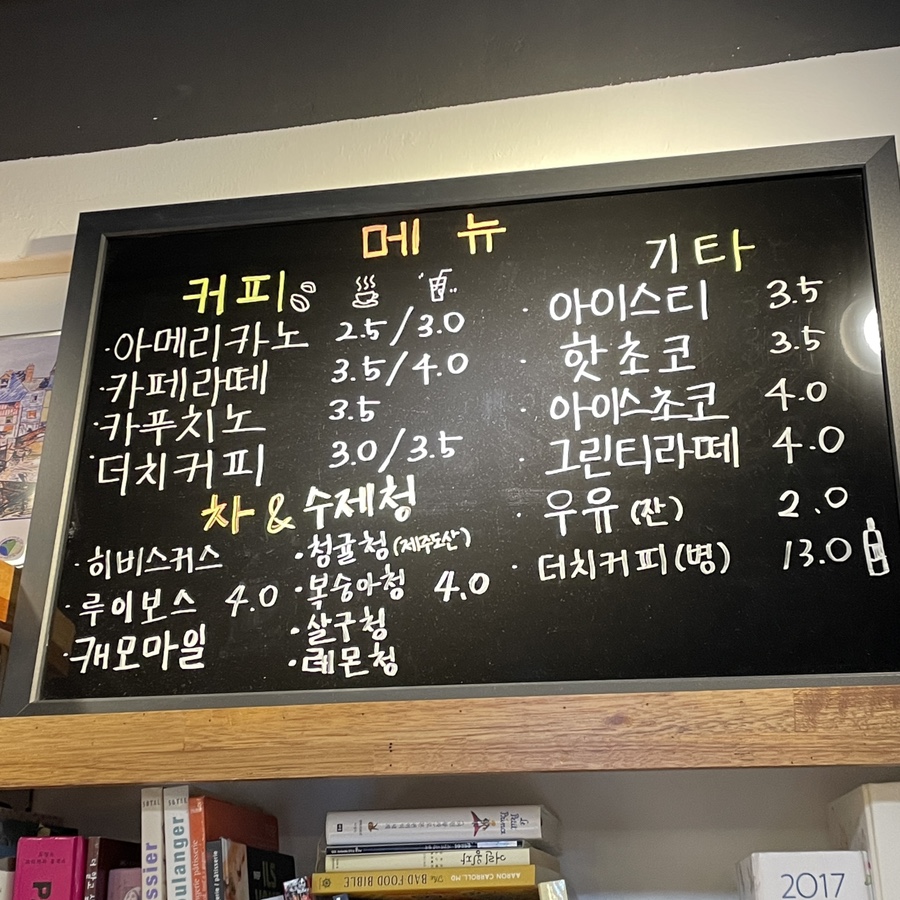 메뉴
커피
·아메리카노 2.5/3.0
·카페라떼 3.5/4.0
·카푸치노 3.5
·더치커피 3.0/3.5
차 & 수제청
·히비스커스
·루이보스 4.0
·캐모마일
·청귤청(제주도산)
·복숭아청 4.0
·살구청
·레몬청
기타
·아이스티 3.5
·핫초코 3.5
·아이스초코 4.0
·그린티라떼 4.0
·우유(잔) 2.0
·더치커피(병) 13.0
ssier
oulanger
P
ILS
Le Petit Prince
어린왕자
The BAD FOOD BIBLE
AARON CARROLL, MD
2017